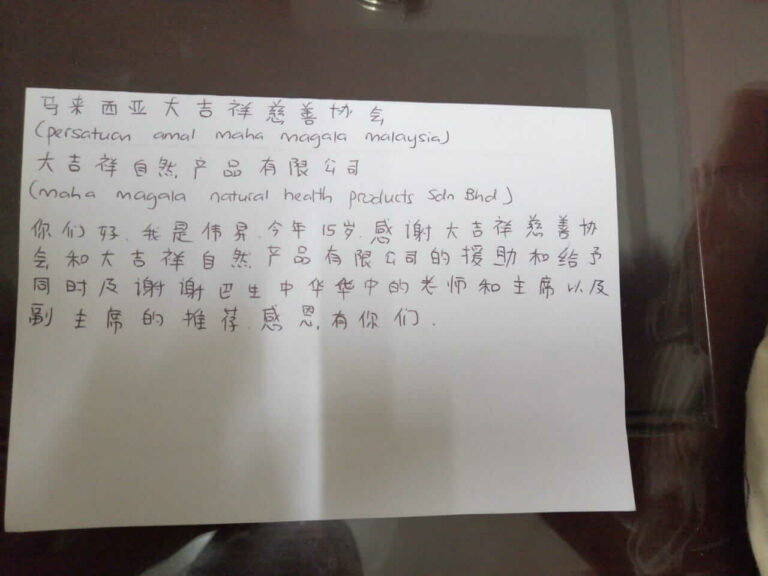 马来西亚大吉祥慈善协会
(persatuan amal maha magala malaysia)
大吉祥自然产品有限公司
(maha magala natural health products Sdn Bhd)
你们好.我是伟昇.今年15岁.感谢大吉祥慈善协
会和大吉祥自然产品有限公司的援助和给予
同时及谢谢巴生中华华中的老师和主席以及
副主席的推荐.感恩.有你们.